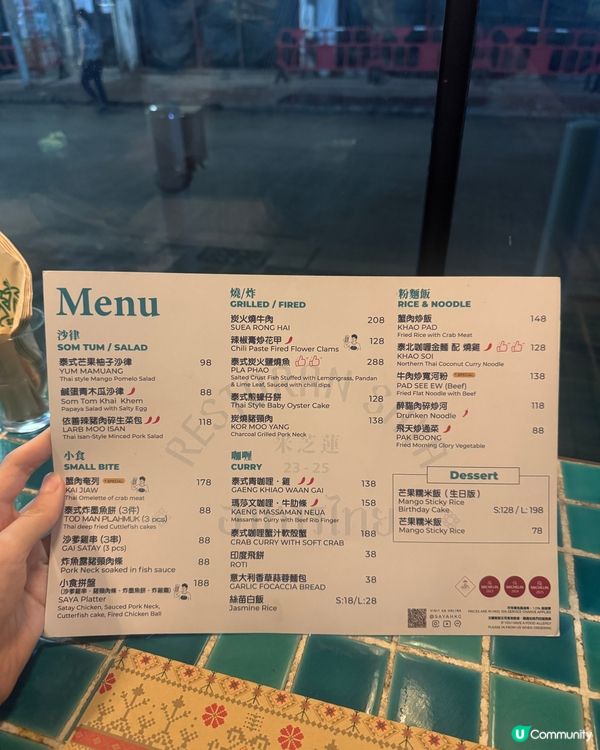 Menu
沙律
SOM TUM / SALAD
泰式芒果柚子沙律 98
YUM MAMUANG
Thai style Mango Pomelo Salad
鹹蛋青木瓜沙律 88
Som Tom Khai Khem
Papaya Salad with Salty Egg
依善辣豬肉碎生菜包 118
LARB MOO ISAN
Thai Isan-Style Minced Pork Salad
小食
SMALL BITE
蟹肉奄列 SPECIAL 178
KAI JIAW
Thai Omelette of crab meat
泰式炸墨魚餅 (3件) 88
TOD MAN PLAHMUK (3 pcs)
Thai deep fried Cuttlefish cakes
沙爹雞串 (3串) 88
GAI SATAY (3 pcs)
炸魚露豬頸肉條 88
Pork Neck soaked in fish sauce
小食拼盤 188
SAYA Platter
Satay Chicken, Sauced Pork Neck,
Cuttlefish cake, Fired Chicken Ball
燒/炸
GRILLED / FIRED
炭火燒牛肉 208
SUEA RONG HAI
辣椒膏炒花甲 128
Chili Paste Fired Flower Clams
泰式炭火鹽燒魚 288
PLA PHAO
Salted Crust Fish Stuffed with Lemongrass, Pandan
& Lime Leaf, Sauced with chill dips
泰式煎蠔仔餅 128
Thai Style Baby Oyster Cake
炭燒豬頸肉 138
KOR MOO YANG
Charcoal Grilled Pork Neck
咖喱
CURRY
泰式青咖喱·雞 138
GAENG KHIAO WAAN GAI
瑪莎文咖喱·牛肋條 158
KAENG MASSAMAN NEUA
Massaman Curry with Beef Rib Finger
泰式咖喱蟹汁軟殼蟹 188
CRAB CURRY WITH SOFT CRAB
印度飛餅 38
ROTI
意大利香草蒜蓉麵包 38
GARLIC FOCACCIA BREAD
絲苗白飯 S:18/L:28
Jasmine Rice
粉麵飯
RICE & NOODLE
蟹肉炒飯 148
KHAO PAD
Fried Rice with Crab Meat
泰北咖喱金麵 配 燒雞 128
KHAO SOI
Northern Thai Coconut Curry Noodle
牛肉炒寬河粉 SPECIAL 138
PAD SEE EW (Beef)
Fried Flat Noodle with Beef
醉貓肉碎炒河 118
Drunken Noodle
飛天炒通菜 88
PAK BOONG
Fried Morning Glory Vegetable
Dessert
芒果糯米飯（生日版）
Mango Sticky Rice
Birthday Cake S:128 / L:198
芒果糯米飯
Mango Sticky Rice 78
23 - 25
MICHELIN
MICHELIN
MICHELIN
VISIT US ONLINE
@SAYAHKG
PRICES ARE IN HKD, 10% SERVICE CHARGE APPLIES
PLEASE INFORM US WHEN ORDERING
U Community